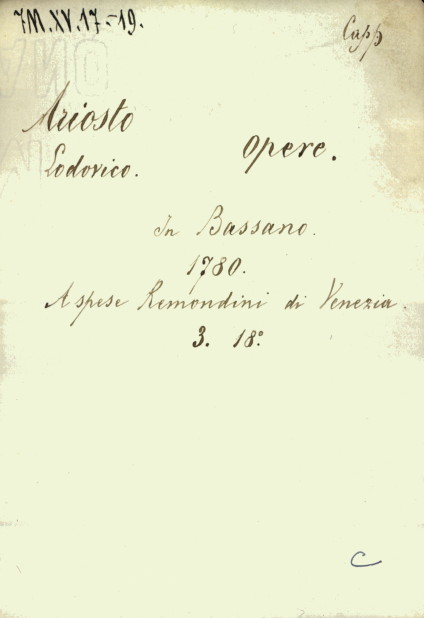 7M.XV.17-19.
Capp
Ariosto
Lodovico.
Opere.
In Bassano.
1780.
A spese Remondini di Venezia.
3. 18º.
C